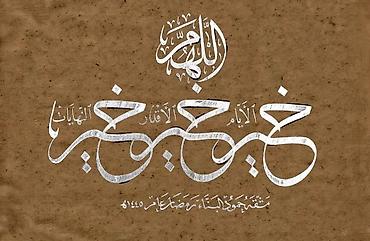 اللهم
خير الأيام خير الأقدار خير النهايات
مشقه حمود البناء رمضان عام ١٤٤٥هـ